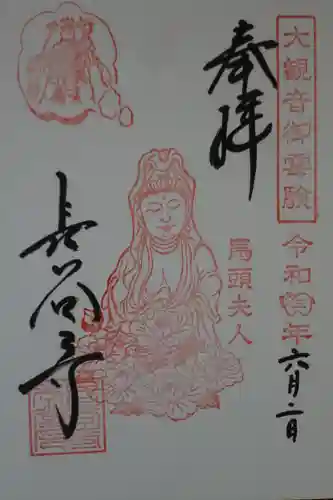 大観音御霊験
令和
年
六月二日
奉拝
馬頭夫人
長谷寺